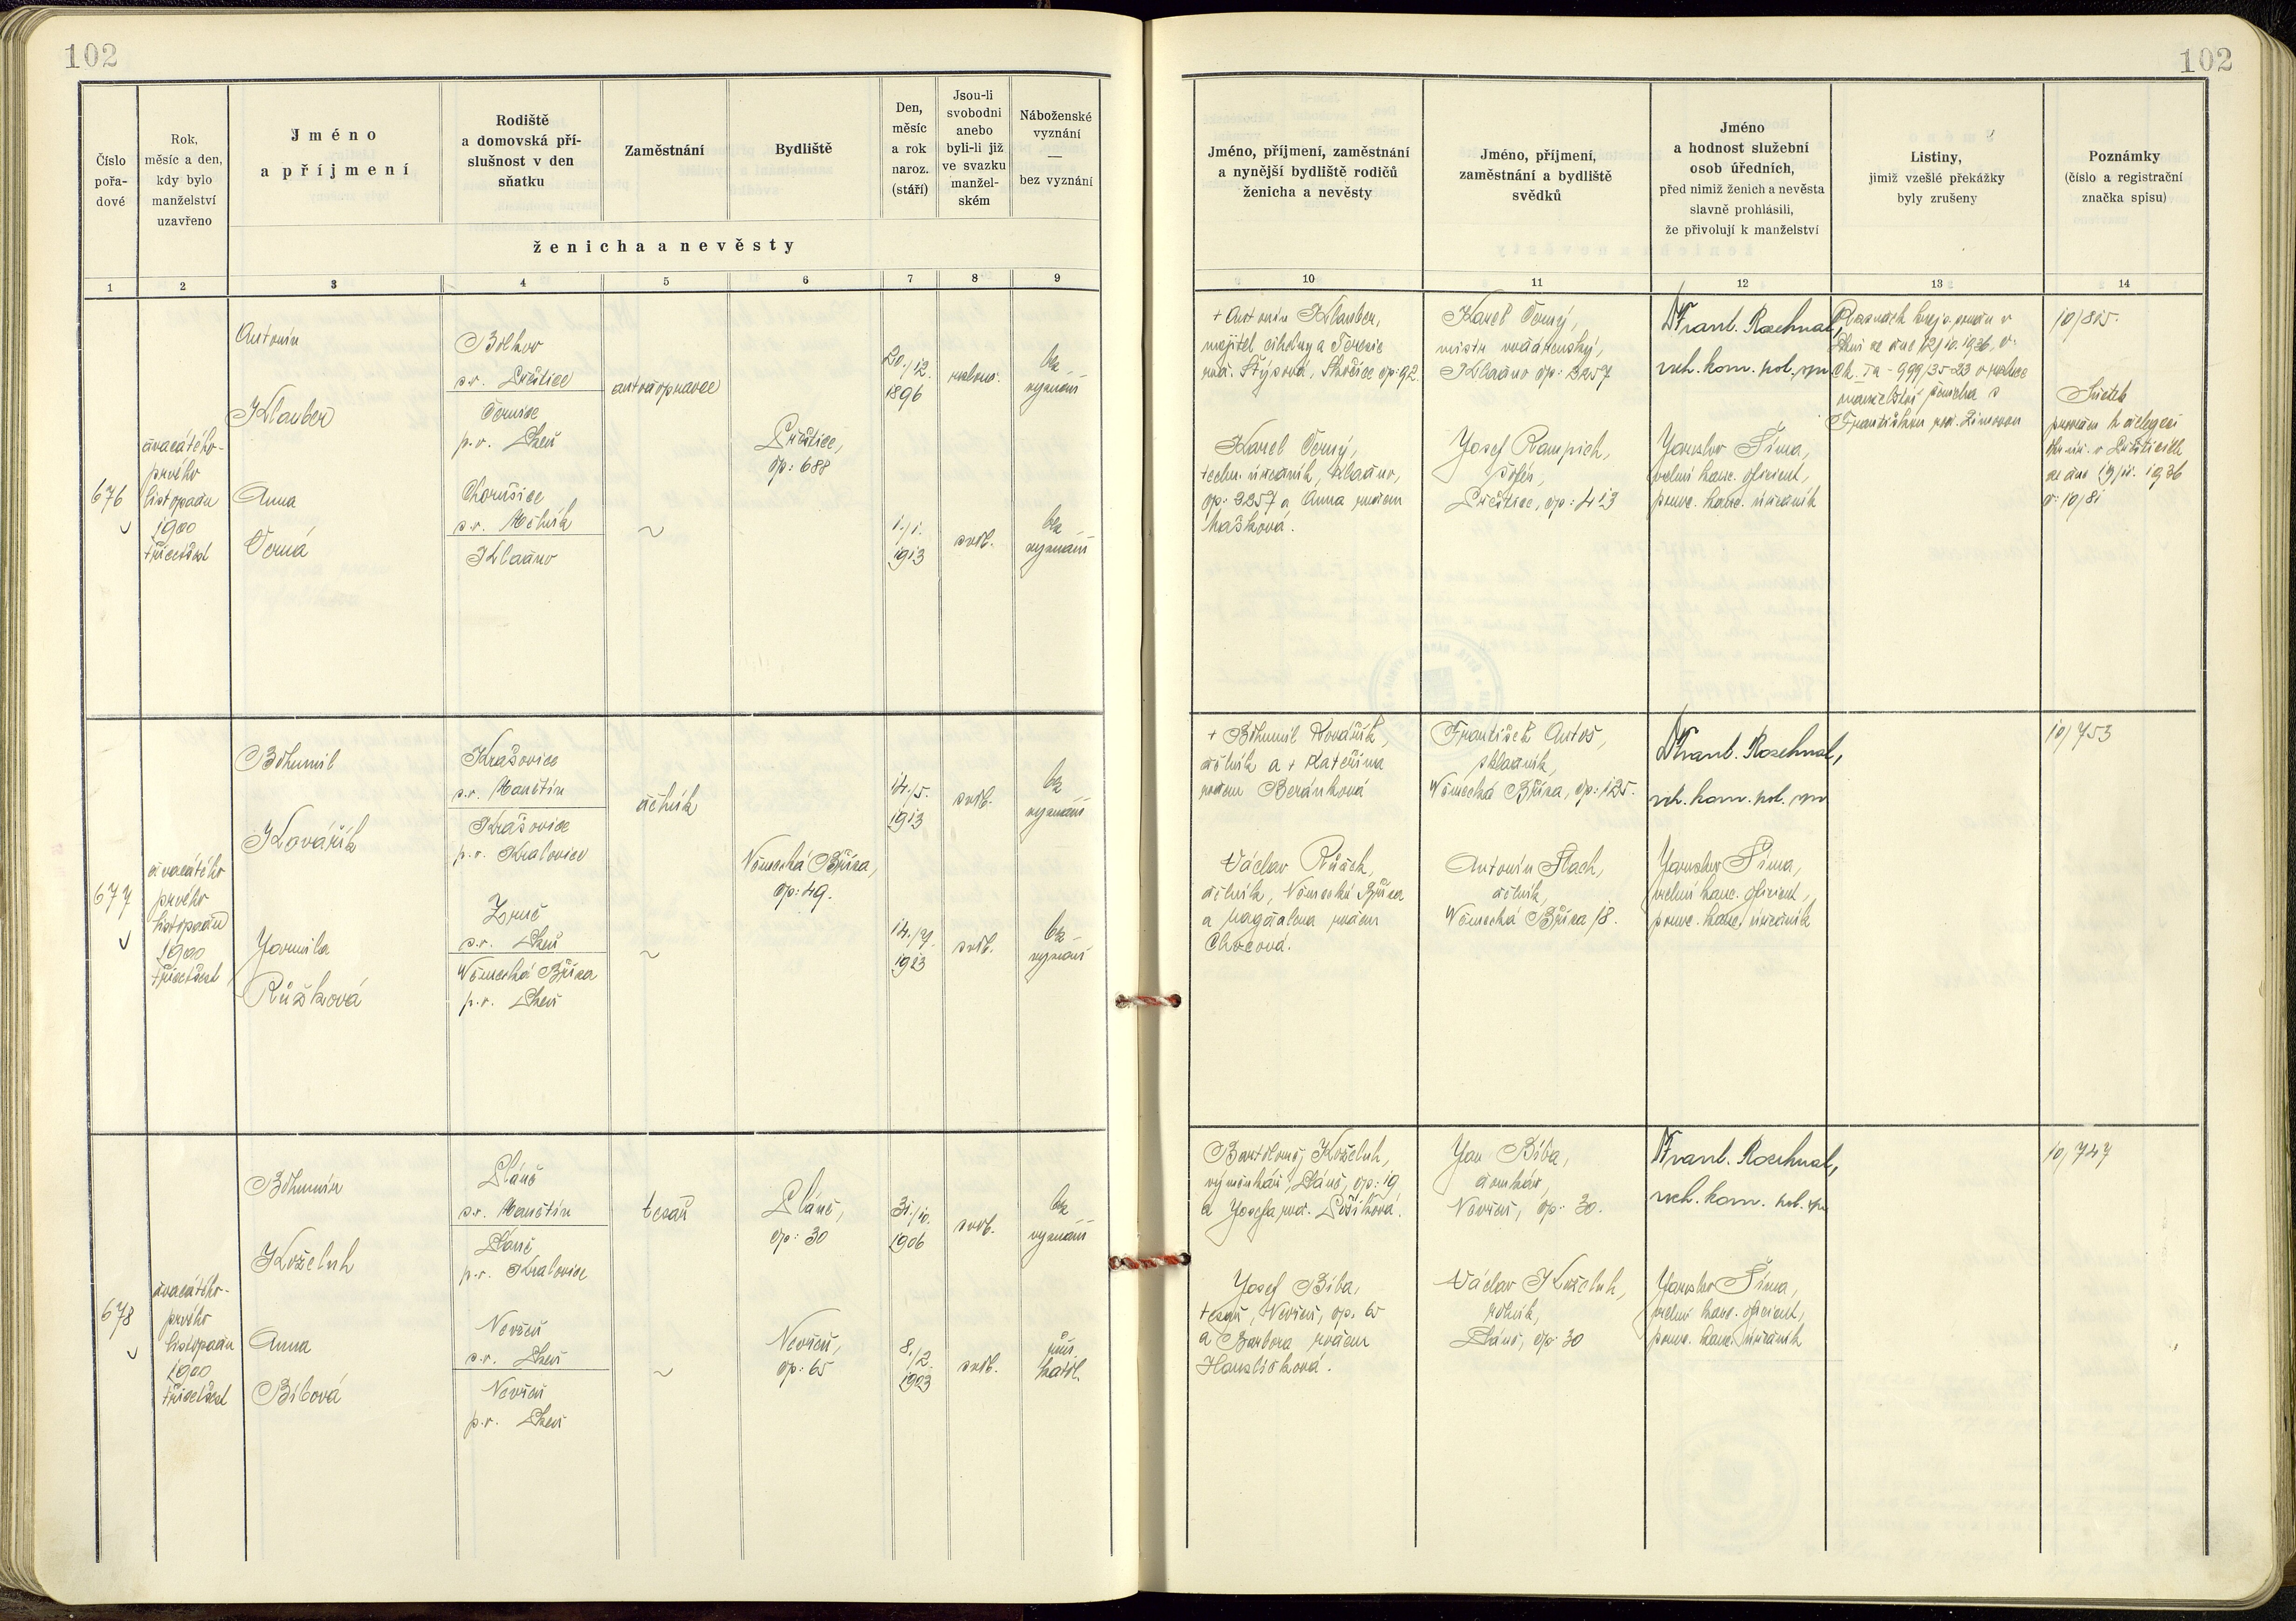 102
102
Číslo
pořa-
dové
Rok,
měsíc a den,
kdy bylo
manželství
uzavřeno
Jméno
a příjmení
Rodiště
a domovská pří-
slušnost v den
sňatku
Zaměstnání
Bydliště
Den,
měsíc
a rok
naroz.
(stáří)
Jsou-li
svobodni
anebo
byli-li již
ve svazku
manžel-
ském
Náboženské
vyznání
—
bez vyznání
ženicha a nevěsty
Jméno, příjmení, zaměstnání
a nynější bydliště rodičů
ženicha a nevěsty
Jméno, příjmení,
zaměstnání a bydliště
svědků
Jméno
a hodnost služební
osob úředních,
před nimiž ženich a nevěsta
slavně prohlásili,
že přivolují k manželství
Listiny,
jimiž vzešlé překážky
byly zrušeny
Poznámky
(číslo a registrační
značka spisu)
1 2 3 4 5 6 7 8 9 10 11 12 13 14
676
dvacátého-
prvého
listopadu
1900
třicetšest
Antonín
Klauber
Anna
Černá
s.o. Přeštice
Černice
p.o. Plzeň
Chorušice
s.o. Mělník
Kladno
autodopravce
~
Přeštice,
čp: 688
20./12.
1896
1./1.
1913
rozlouč.
svob.
bez
vyznání
bez
vyznání
+ Antonín Klauber,
majitel cihelny a Terezie
čp: 92.
Karel Černý,
techn. úředník, Kladno,
čp: 2257 a Anna rozem
Mašková.
Karel Černý,
Kladno čp: 2257
Josef Rampich,
šofér,
Přeštice, čp: 413
Dr Frant. Rozehnal,
vrch. kom. pol. spr.
Jaroslav Šíma,
velmi kanc. oficient,
pověř. kanc. úředník
Rozsudek kraj. soudu v
Plzni ze dne 12/10. 1936, č.
Ck Ia - 999/35-23 o rozluce
manželství ženicha s
Františkou roz.
10/805.
Sňatek
v Přešticích
ze dne 1936
č: 10/81
677
dvacátého
prvého
listopadu
1900
třicetšest
Bohumil
Kovářík
Jarmila
Růžková
Krašovice
s.o. Manětín
Krašovice
p.o. Kralovice
Zruč
s.o. Plzeň
Německá Bříza
p.o. Plzeň
dělník
~
Německá Bříza,
čp: 49.
14./5.
1913
14./7.
1913
svob.
svob.
bez
vyznání
bez
vyznání
+ Bohumil Kovářík,
dělník a + Kateřina
rozem Beránková
Václav Růžek,
dělník, Německá Bříza
a Magdalena rozem
Chocová.
František Antoš,
skladník,
Německá Bříza, čp: 125.
Antonín Flach,
dělník,
Německá Bříza 18.
Dr Frant. Rozehnal,
vrch. kom. pol. spr.
Jaroslav Šíma,
velmi kanc. oficient,
pověř. kanc. úředník
10/753
678
dvacátého-
prvého
listopadu
1900
třicetšest
Bohumír
Koželuh
Anna
Bíbová
Pláně
s.o. Manětín
Pláně
p.o. Kralovice
Nevřeň
s.o. Plzeň
Nevřeň
p.o. Plzeň
tesař
~
Pláně,
čp: 30
Nevřeň,
čp: 65
31./10.
1906
8./2.
1913
svob.
svob.
bez
vyznání
řím.
katol.
Bartoloměj Koželuh,
výměnkář, Pláně, čp: 19
a Josefa roz.
Josef Bíba,
tesař, Nevřeň, čp. 65
a Barbora rozem
Havlíčková.
Jan Bíba,
domkář,
Nevřeň, čp: 30.
Václav Koželuh,
rolník,
Pláně, čp: 30
Dr Frant. Rozehnal,
vrch. kom. pol. spr.
Jaroslav Šíma,
velmi kanc. oficient,
pověř. kanc. úředník
10/747